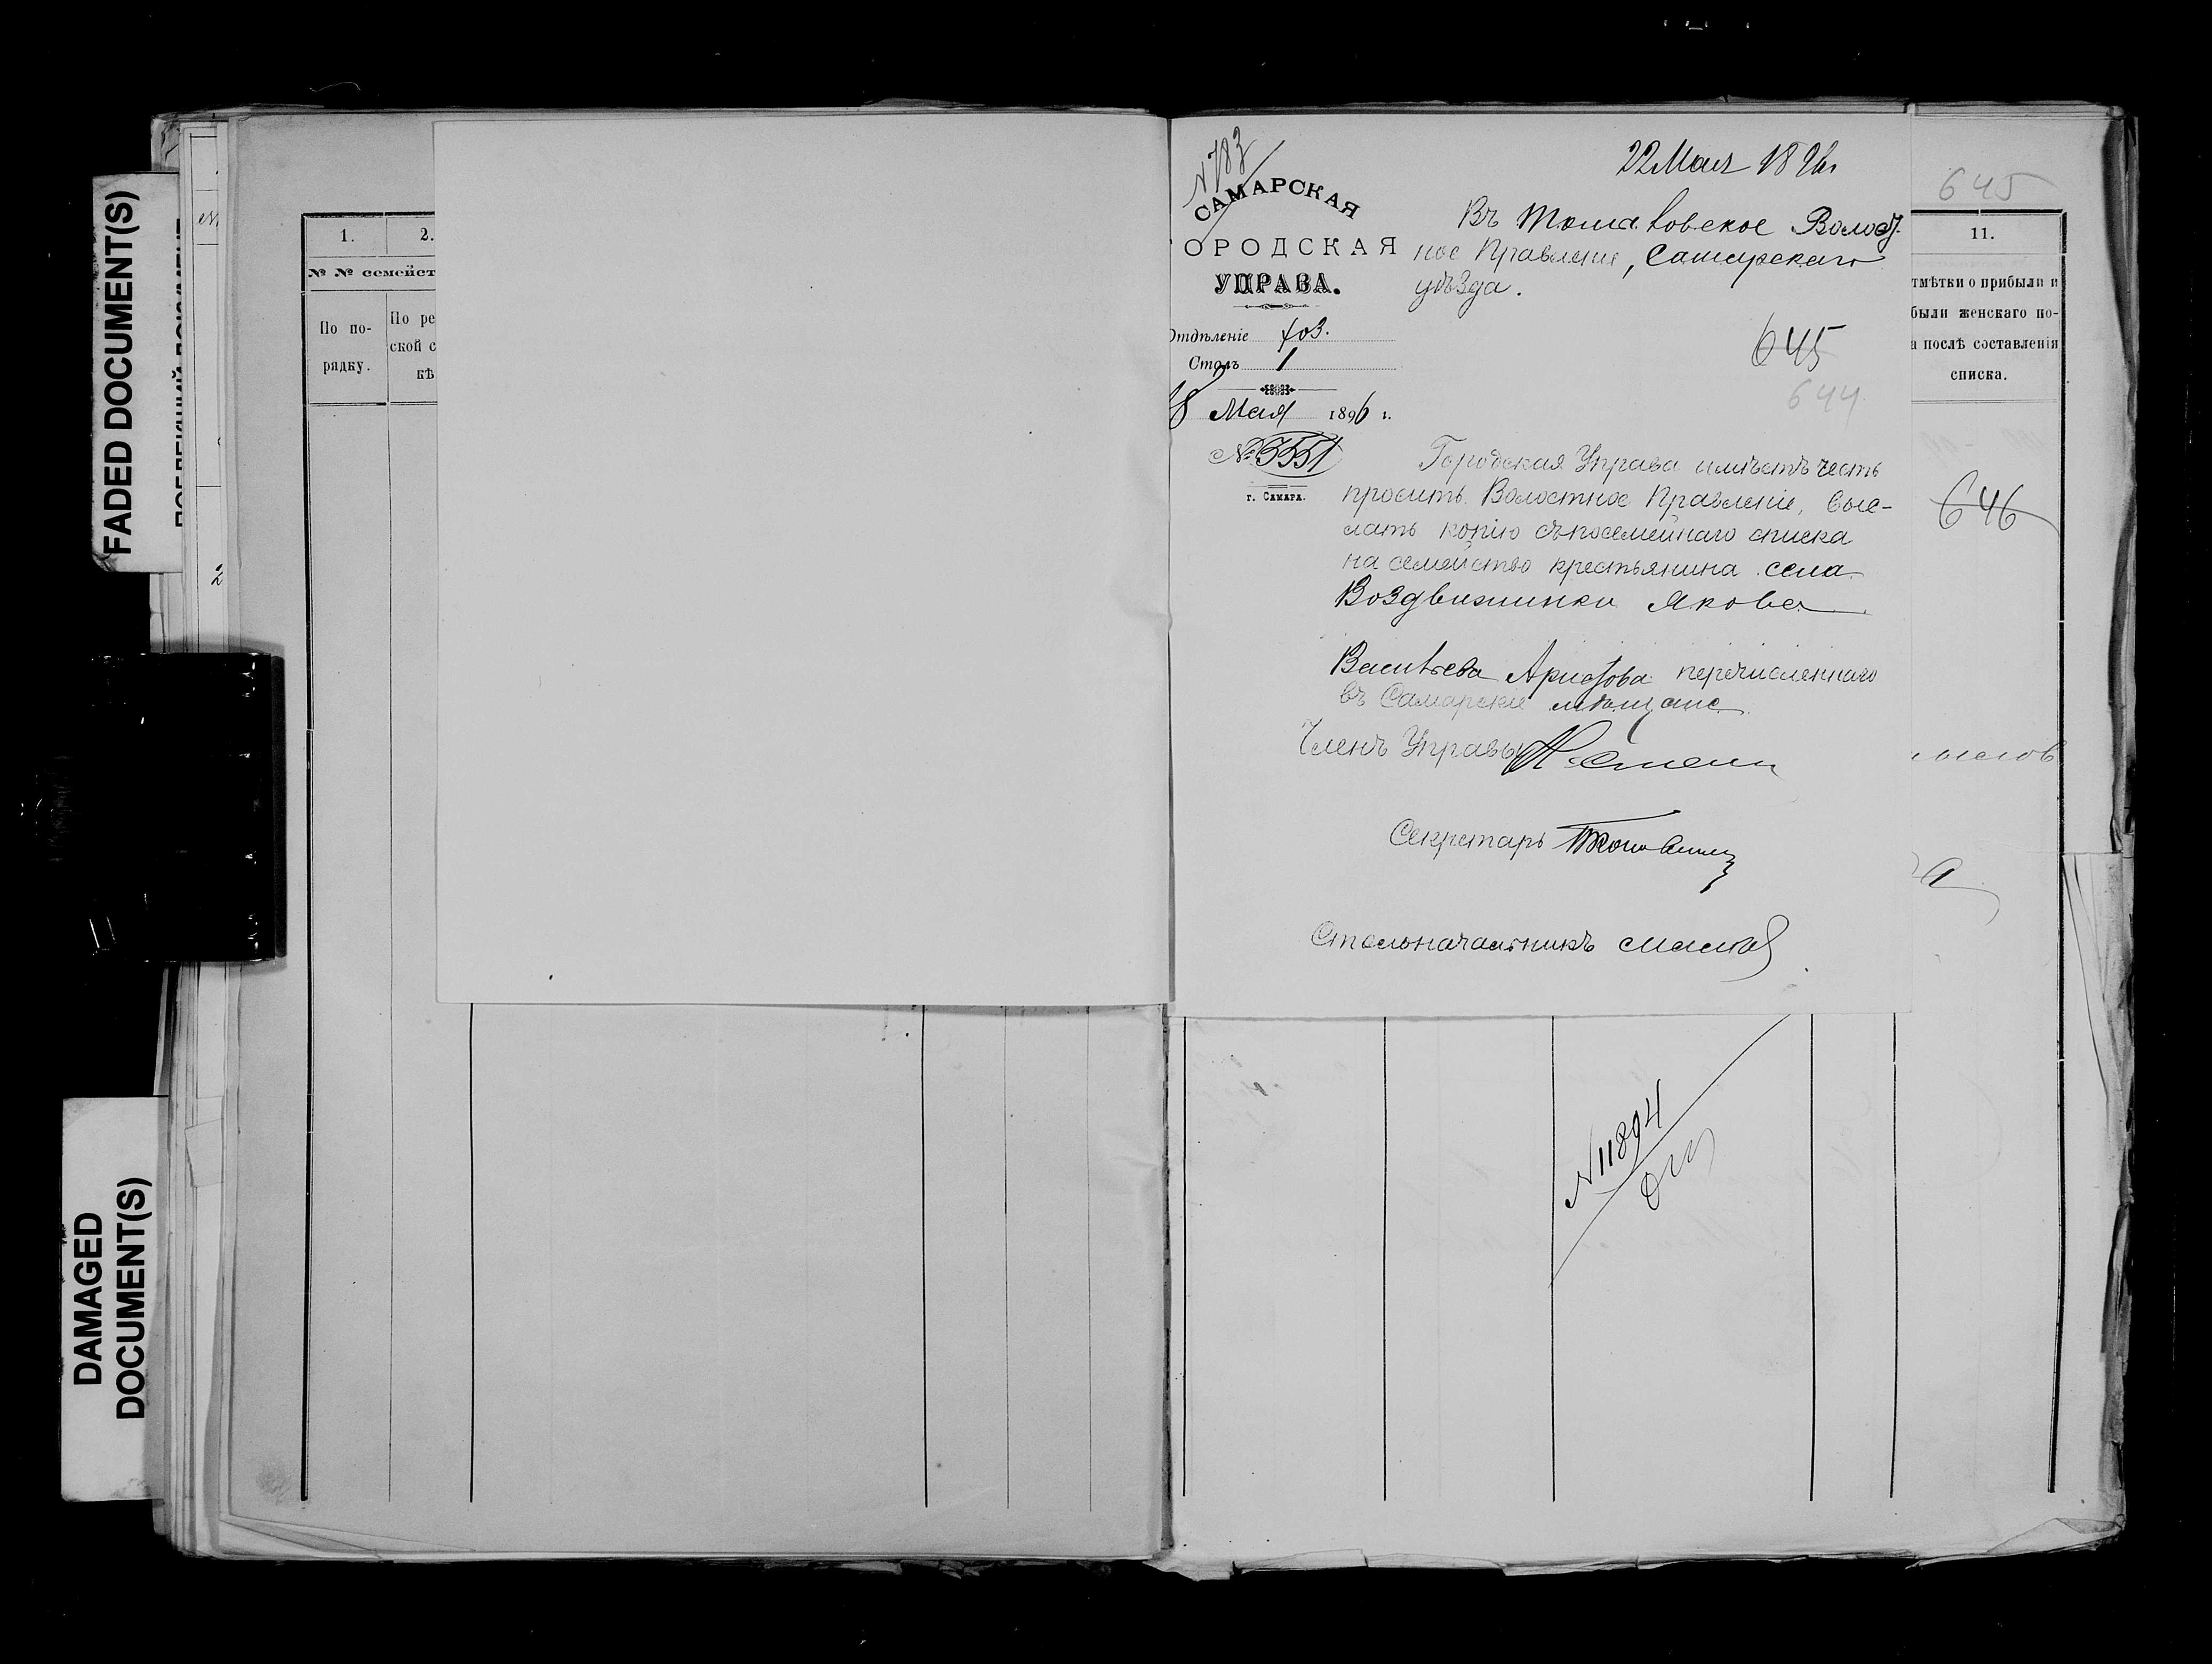 FADED DOCUMENT(S)
DAMAGED
DOCUMENT(S)
1.
2.
№ № семейст
По по-
рядку.
По ре
ской с
кѣ
N 783
САМАРСКАЯ
ОРОДСКАЯ
УПРАВА.
Отдѣленіе хоз.
Столъ 1
18 Мая 1896 г.
№ 3551
г. САМАРА.
22 Мая 1896 г
Въ Томашовское Волост
ное Правленіе, Самарскаго
уѣзда.
645
644
Городская Управа имѣетъ честь
проситъ Волостное Правленіе, выс-
лать копію съ посемейнаго списка
на семейство крестьянина села
Воздвиженки Якова
Васильева Аристова перечисленнаго
въ Самарскіе мѣщане
Членъ Управы
Секретарь
Столоначальникъ
645
11.
тмѣтки о прибыли и
были женскаго по-
а послѣ составленія
списка.
646
N 11894